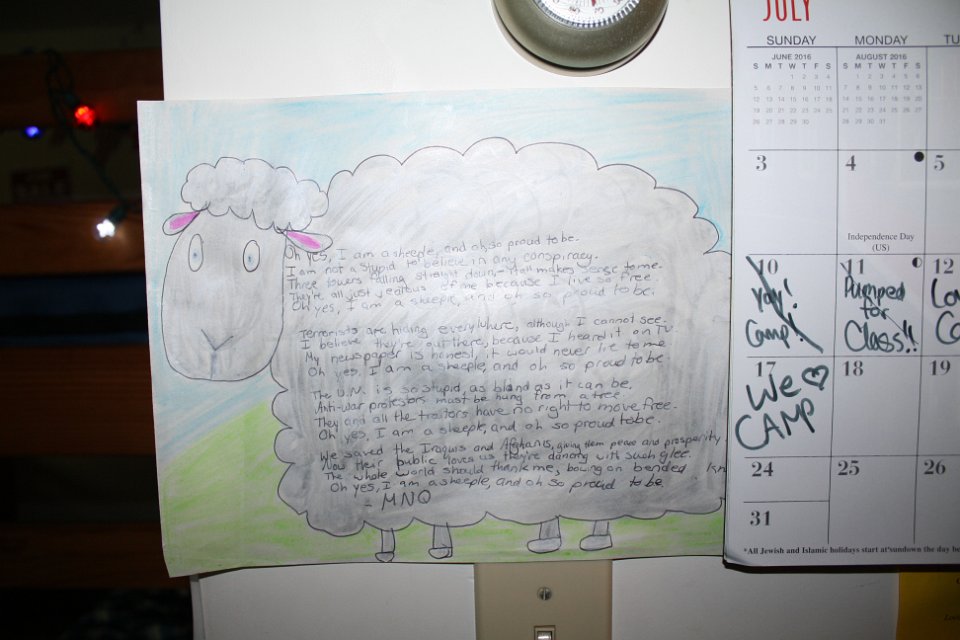 Oh yes, I am a sheeple, and oh, so proud to be.
I am not a stupid to believe in any conspiracy.
Three towers falling straight down,- that makes sense to me.
They're all just jealous of me because I live so free.
Oh yes, I am a sheeple, and oh so proud to be.
Terrorists are hiding everywhere, although I cannot see.
I believe they're out there, because I heard it on TV.
My newspaper is honest, it would never lie to me
Oh yes, I am a sheeple, and oh so proud to be.
The U.N. is so stupid, as bland as it can be.
Anti-war protestors must be hung from a tree.
They and all the traitors have no right to move free.
Oh yes, I am a sheeple, and oh so proud to be.
We saved the Iraquis and Afghanis, giving them peace and prosperity
Now their public loves us they're dancing with such glee.
The whole world should thank me, bowing on bended kn
Oh yes, I am a sheeple, and oh so proud to be
- MNO
JULY
SUNDAY MONDAY TU
JUNE 2016 AUGUST 2016
S M T W T F S S M T W T F S
1 2 3 4 1 2 3 4 5 6
5 6 7 8 9 10 11 7 8 9 10 11 12 13
12 13 14 15 16 17 18 14 15 16 17 18 19 20
19 20 21 22 23 24 25 21 22 23 24 25 26 27
26 27 28 29 30 28 29 30 31
3 4 5
Independence Day
(US)
10 11 12
yay!
Camp!
Pumped
for
Class!!
17 18 19
We
CAMP
24 25 26
31
*All Jewish and Islamic holidays start at sundown the day be